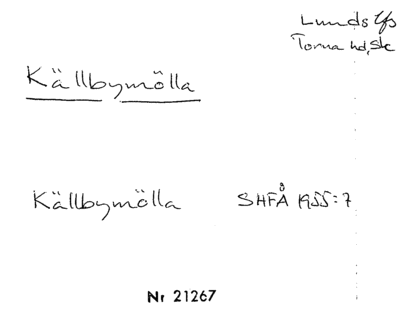 Lunds lfs
Torna hd, Sk
Källbymölla
Källbymölla SHFÅ 1955:7
Nr 21267